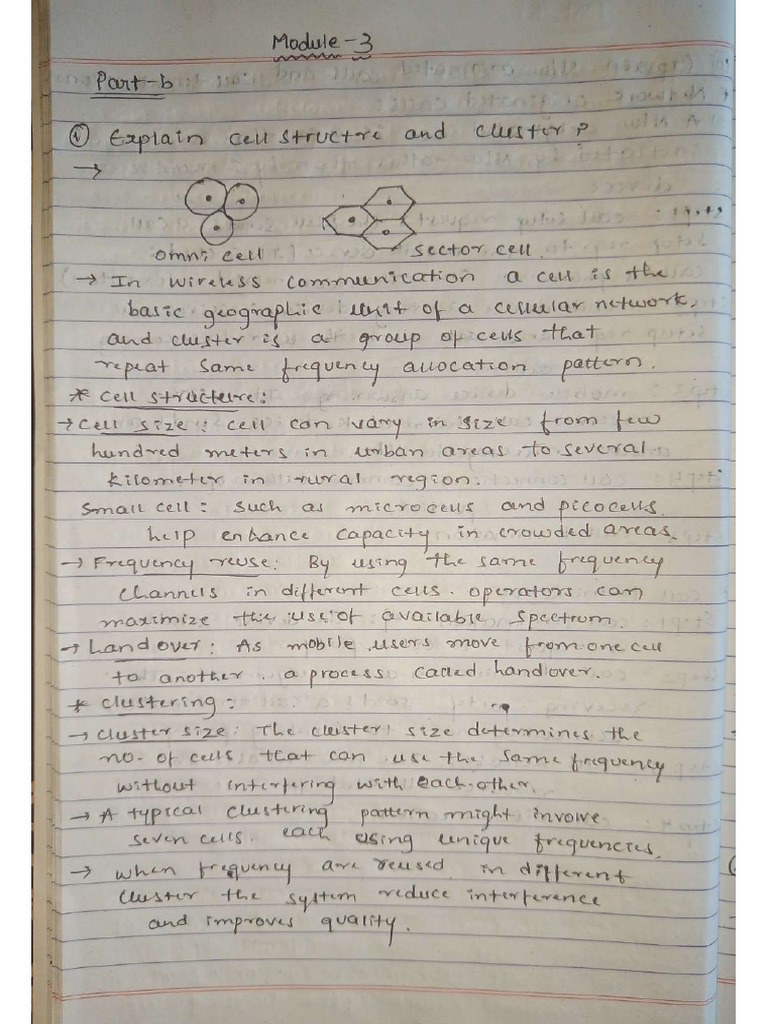 Module - 3
Part-b
① Explain cell structre and cluster?
→
omni cell sector cell
→ In wireless communication a cell is the
basic geographic unit of a cellular network,
and cluster is a group of cells that
repeat same frequency allocation pattern.
* cell structure:
→ cell size: cell can vary in size from few
hundred meters in urban areas to several
kilometer in rural region.
small cell: such as microcells and picocells
help enhance capacity in crowded areas.
→ Frequency reuse: By using the same frequency
channels in different cells. operators can
maximize the use of available spectrum
→ Landover: As mobile users move from one cell
to another. a process called handover.
* clustering:
→ cluster size: The cluster size determines the
no. of cells that can use the same frequency
without interfering with each other.
→ A typical clustering pattern might involve
seven cells. each using unique frequencies.
→ when frequency are reused in different
cluster the system reduce interference
and improves quality.